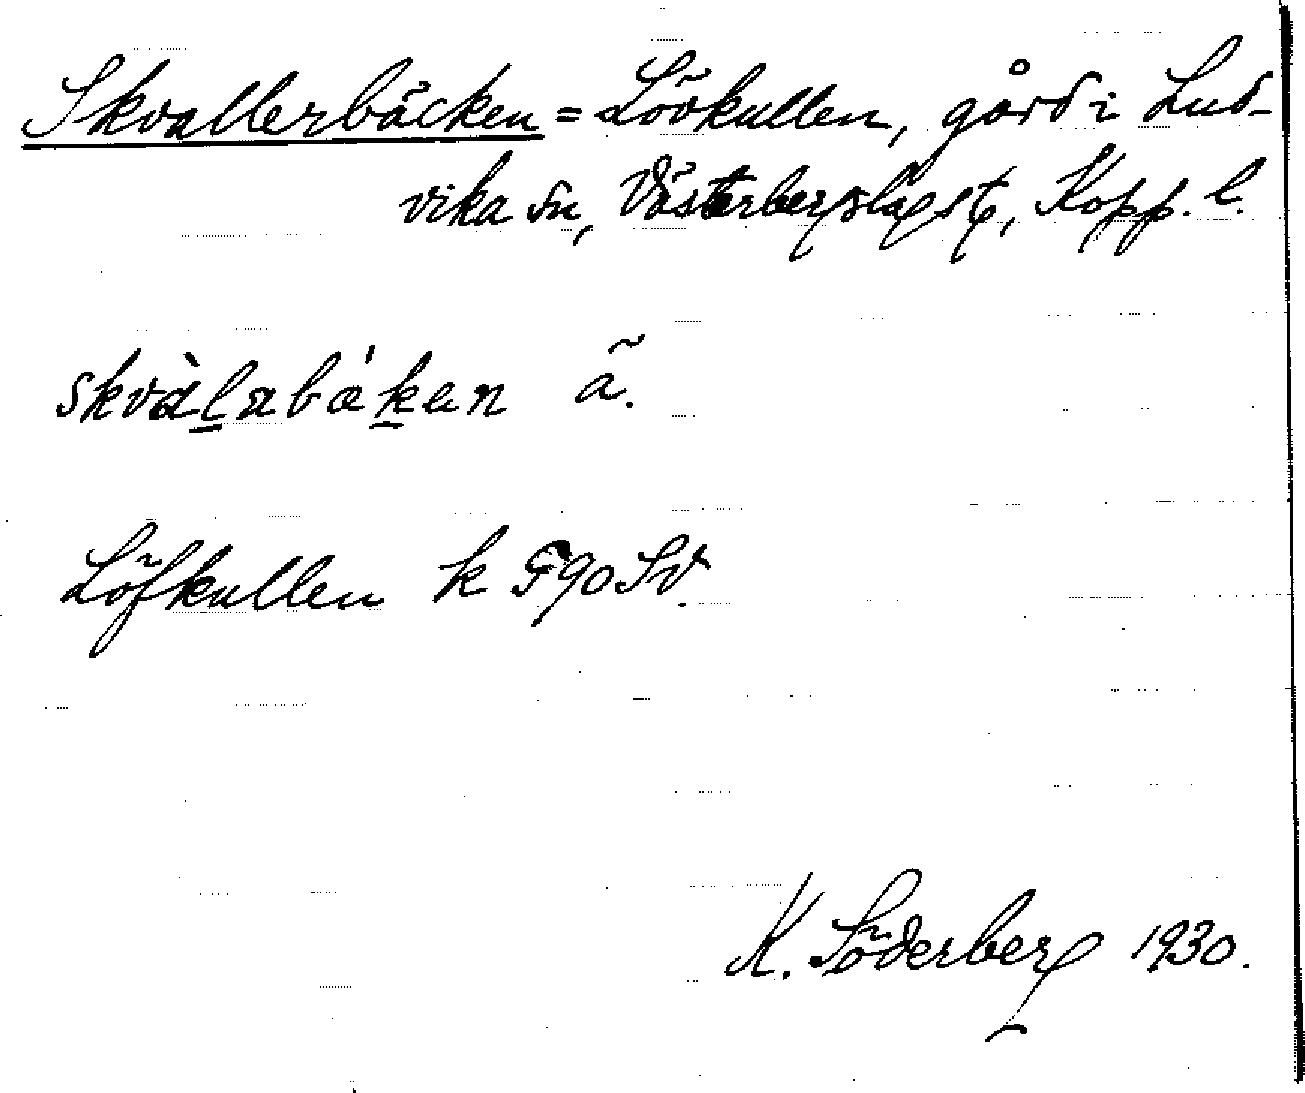 Skvallerbäcken = Lövkullen, gård i Lud-
vika sn, Västerbergslags t, Kopp. l.
skvàl̲ərbák̲ən ã.
Löfkullen k F90SV.
K. Söderberg 1930.